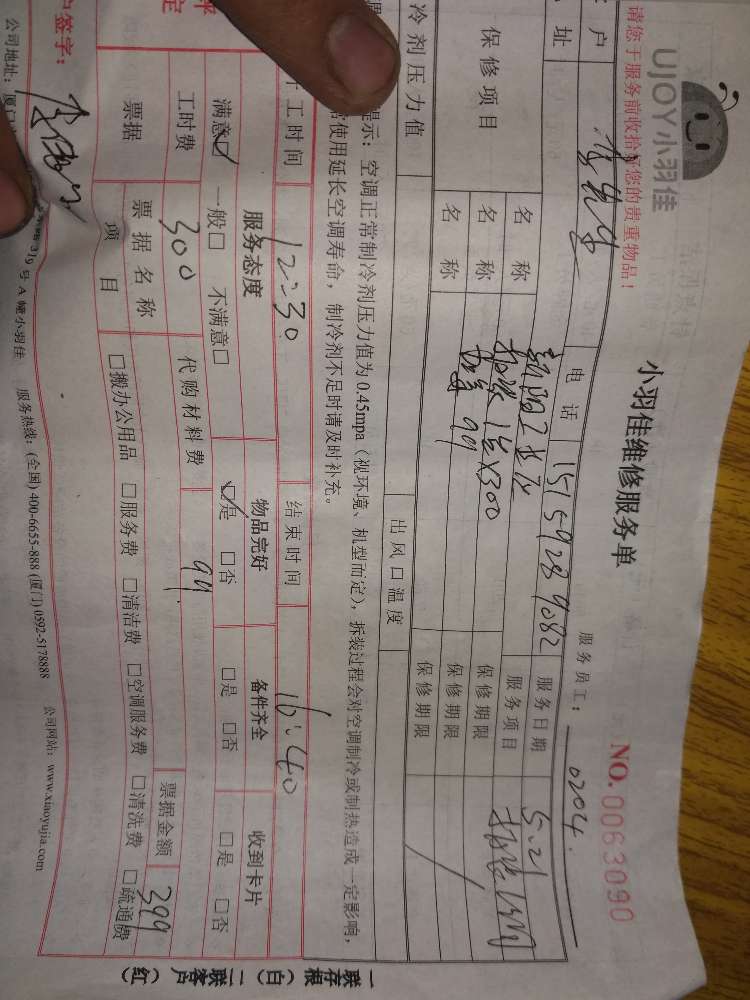 UJOY小羽佳
小羽佳维修服务单
NO.0063090
请您于服务前收拾好您的贵重物品!
服务员工: 0204
户
电话 15159289082
服务日期 5.21
址
服务项目
保修项目
名称
保修期限
名称
99
保修期限
名称
保修期限
冷剂压力值
出风口温度
提示:空调正常制冷剂压力值为0.45mpa(视环境、机型而定),拆装过程会对空调制冷或制热造成一定影响,
常使用延长空调寿命,制冷剂不足时请及时补充。
工时间 12:30
结束时间 16:40
服务态度
物品完好
备件齐全
收到卡片
满意☑ 一般□ 不满意□
☑是 □否
□是 □否
□是 □否
工时费 300
代购材料费 99
票据金额 399
票据
票据名称
项目
□搬办公用品 □服务费 □清洁费 □空调服务费 □清洗费 □疏通费
签字:
公司地址:厦门
319号A幢小羽佳 服务热线:(全国)400-6655-888 (厦门)0592-5178888 公司网站:www.xiaoyujia.com
一联存根(白) 二联客户(红)